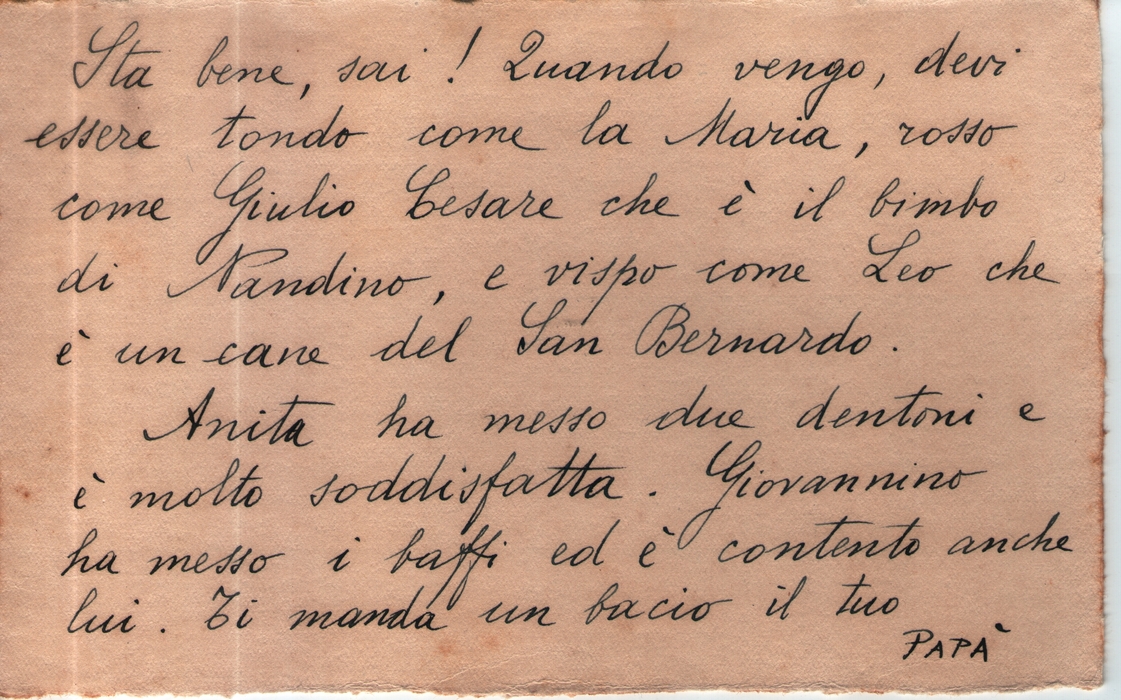 Sta bene, sai! Quando vengo, devi
essere tondo come la Maria, rosso
come Giulio Cesare che è il bimbo
di Nandino, e vispo come Leo che
è un cane del San Bernardo.
Anita ha messo due dentoni e
è molto soddisfatta. Giovannino
ha messo i baffi ed è contento anche
lui. Ti manda un bacio il tuo
PAPÀ